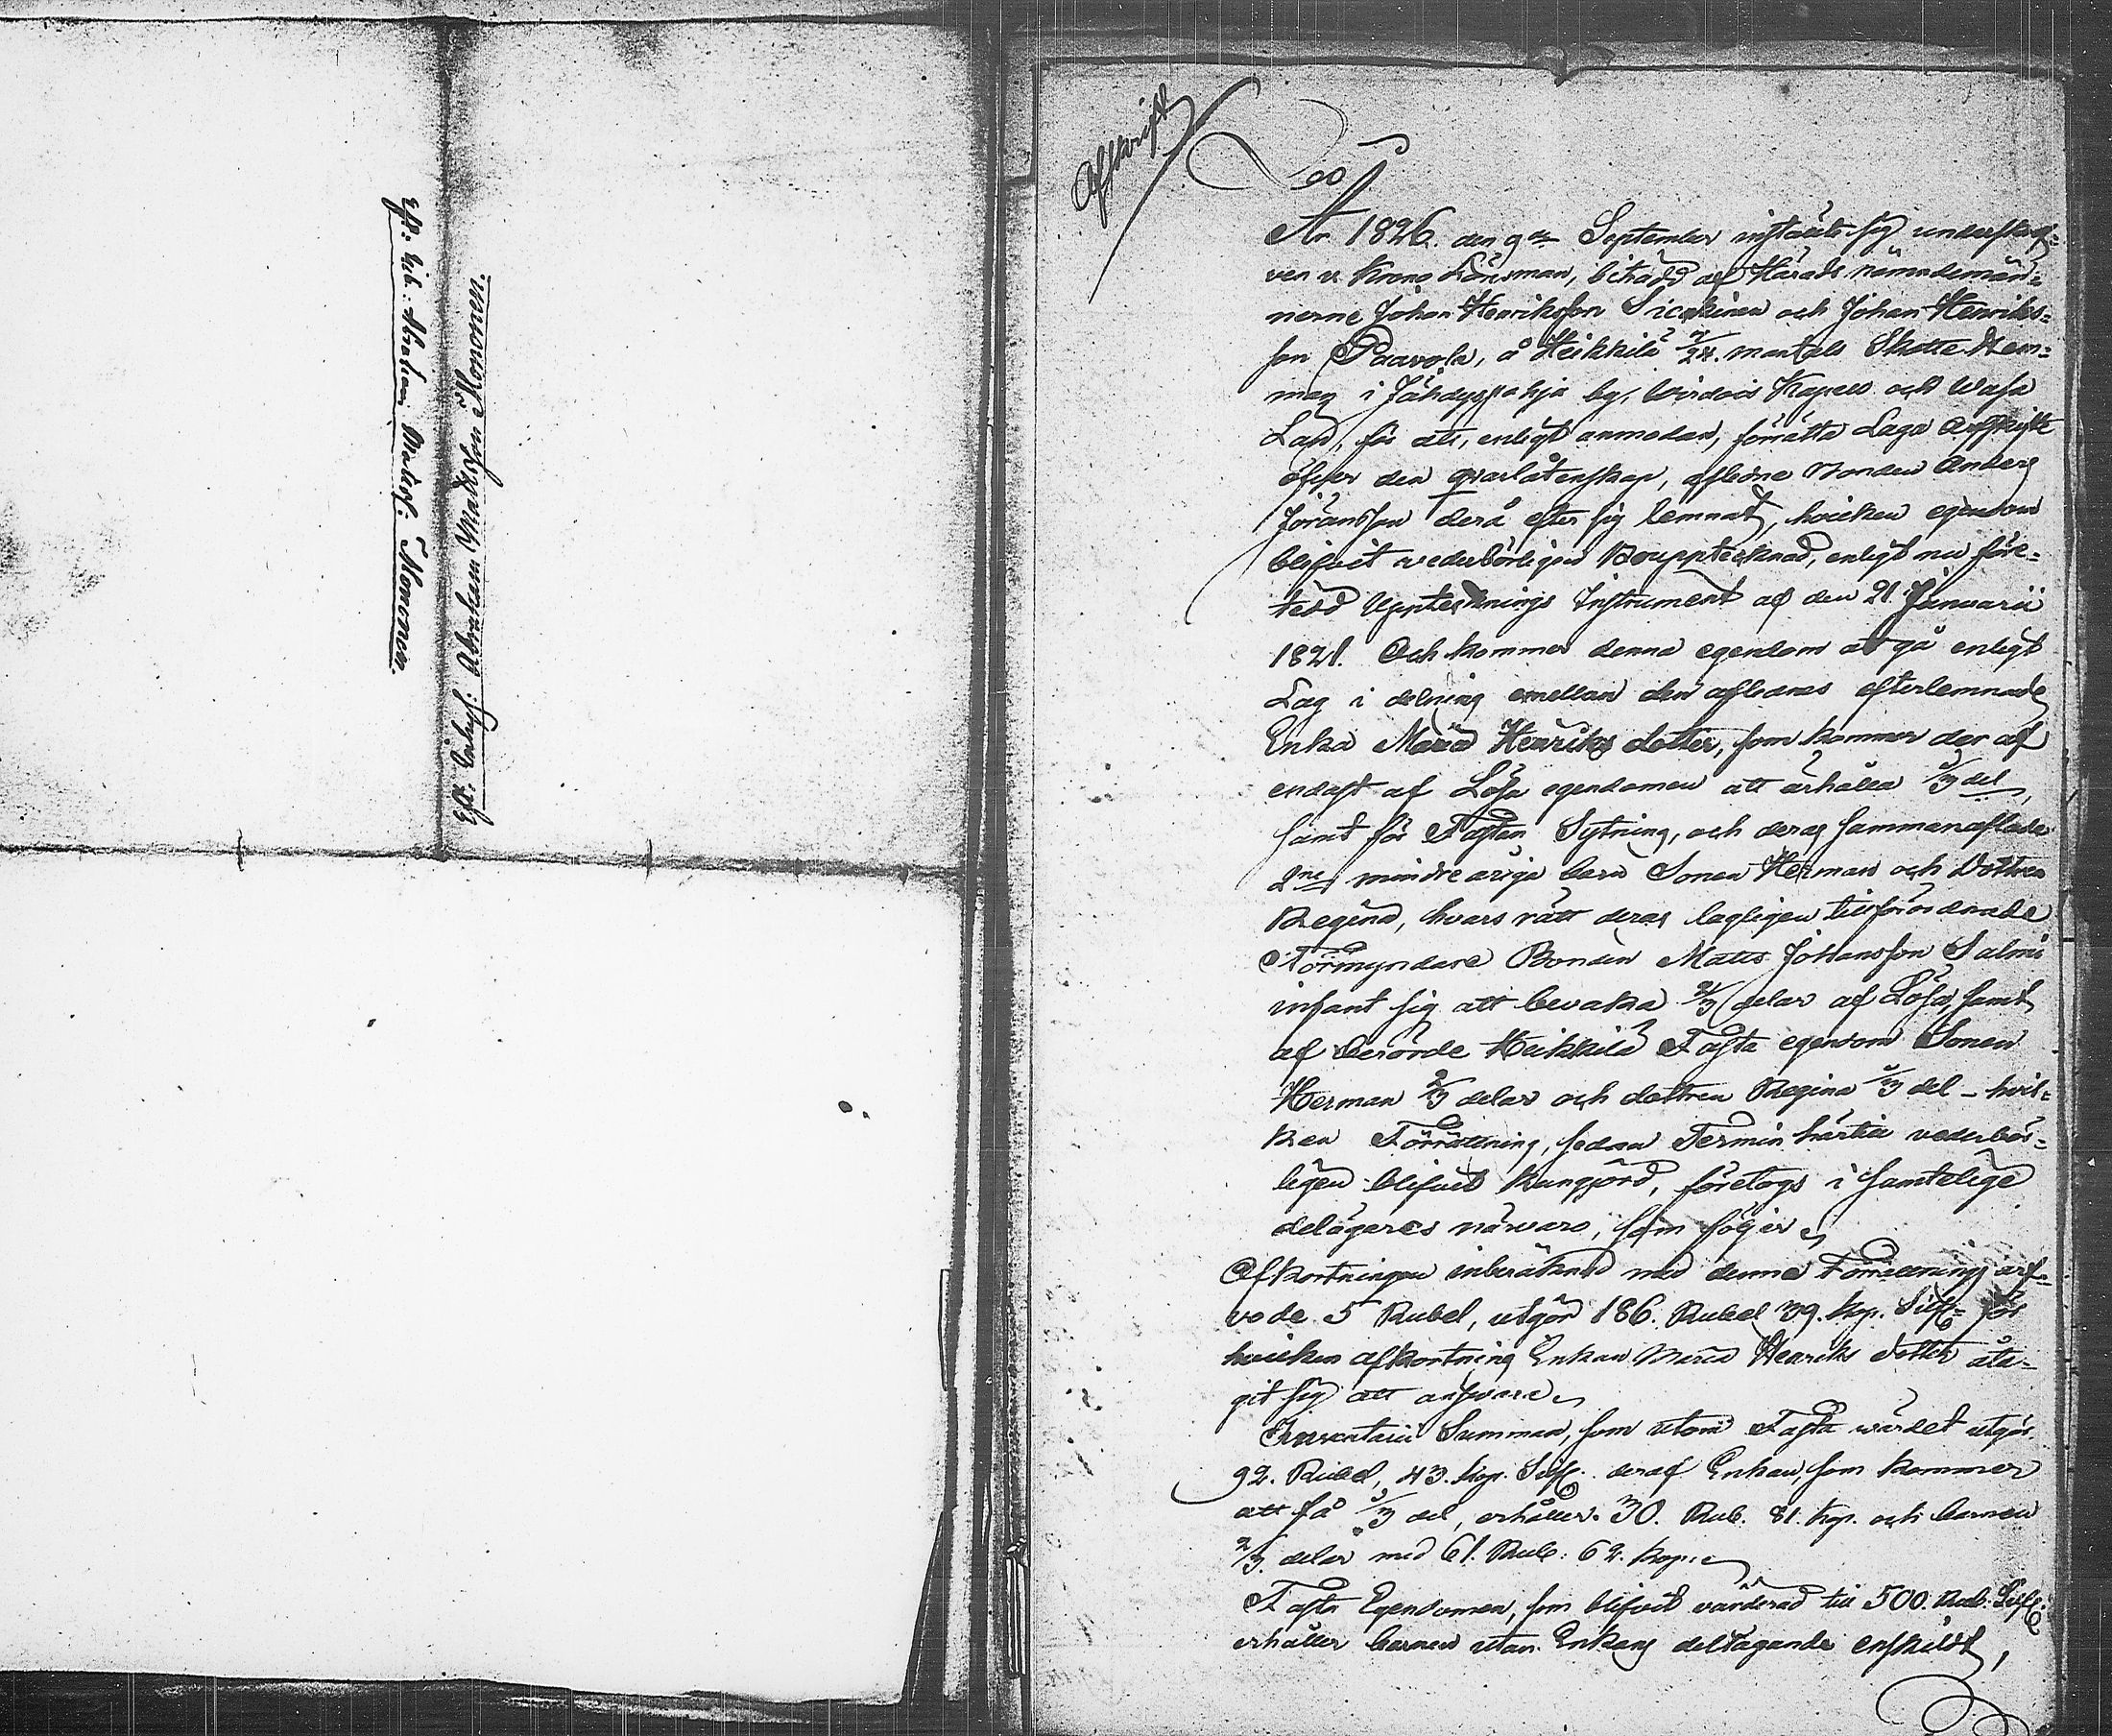 Eft: Inhys: Abraham Mattsson Mononen.
Eft. Inh: Abraham Matts: Mononen.
Afskrift
År 1826. den 9de September instälte sig underskref=
ven v. Krono Länsman, biträdd af Härads nämndemän=
nerne Johan Henriksson Sicakinen och Johan Henriks=
son Paavola, å Heikkilä 7/24. mantals Skatte Hem=
man i Jähdyspohja by, Wirdois Kapell och Wasa
Län, för att, enligt anmodan, förrätta Laga Arfskifte
öfver den qvarlåtenskap, afledne Bonden Anders
Jöransson derå efter sig lemnat, hvilken egendom
blifvit vederbörligen Bouppteknad, enligt nu före=
tedd Upptecknings Instrument af den 21 Januarii
1821. Och kommer denna egendom at gå enligt
Lag i delning emellan den aflednes efterlemnade
Enka Maria Henriks dotter, som kommer der af
endast af Lösa egendomen att erhålla 1/3 del,
samt för Fasten Sytning, och deras sammanaflade
2ne minderåriga barn Sonen Herman och Dottren
Regina, hvars rätt deras lagligen tillförordnade
Förmyndare Bonden Matts Johansson Salmi
infant sig att bevaka 2/3 delar af Lösa, samt
af berörde Heikkilä Fasta egendom Sonen
Herman 2/3 delar och dottren Regina 1/3 del - hvil=
ken Förrättning, sedan Termin härtill vederbör=
ligen blifvit kungjord, företogs i samtelige
delägares närvaro, som följer
Afkortningen inberäknad med denna Förrättnings arf=
vode 5 Rubel, utgör 186. Rubel 39. kop. Silf: för
hvilken afkortning Enkan Maria Henriks dotter åta=
git sig att ansvara
Inventarii Summan, som utom Fasta värdet utgör
92. Rubel, 43. kop. Silf. deraf Enkan, som kommer
att få 1/3 del, erhåller. 30. Rub. 81. kop. och barnen
2/3 delar med 61. Rub: 62. kop:
Fasta Egendomen, som blifvit värderad till 500. Rub. Silf:
erhåller barnen utan Enkans deltagande enskildt,